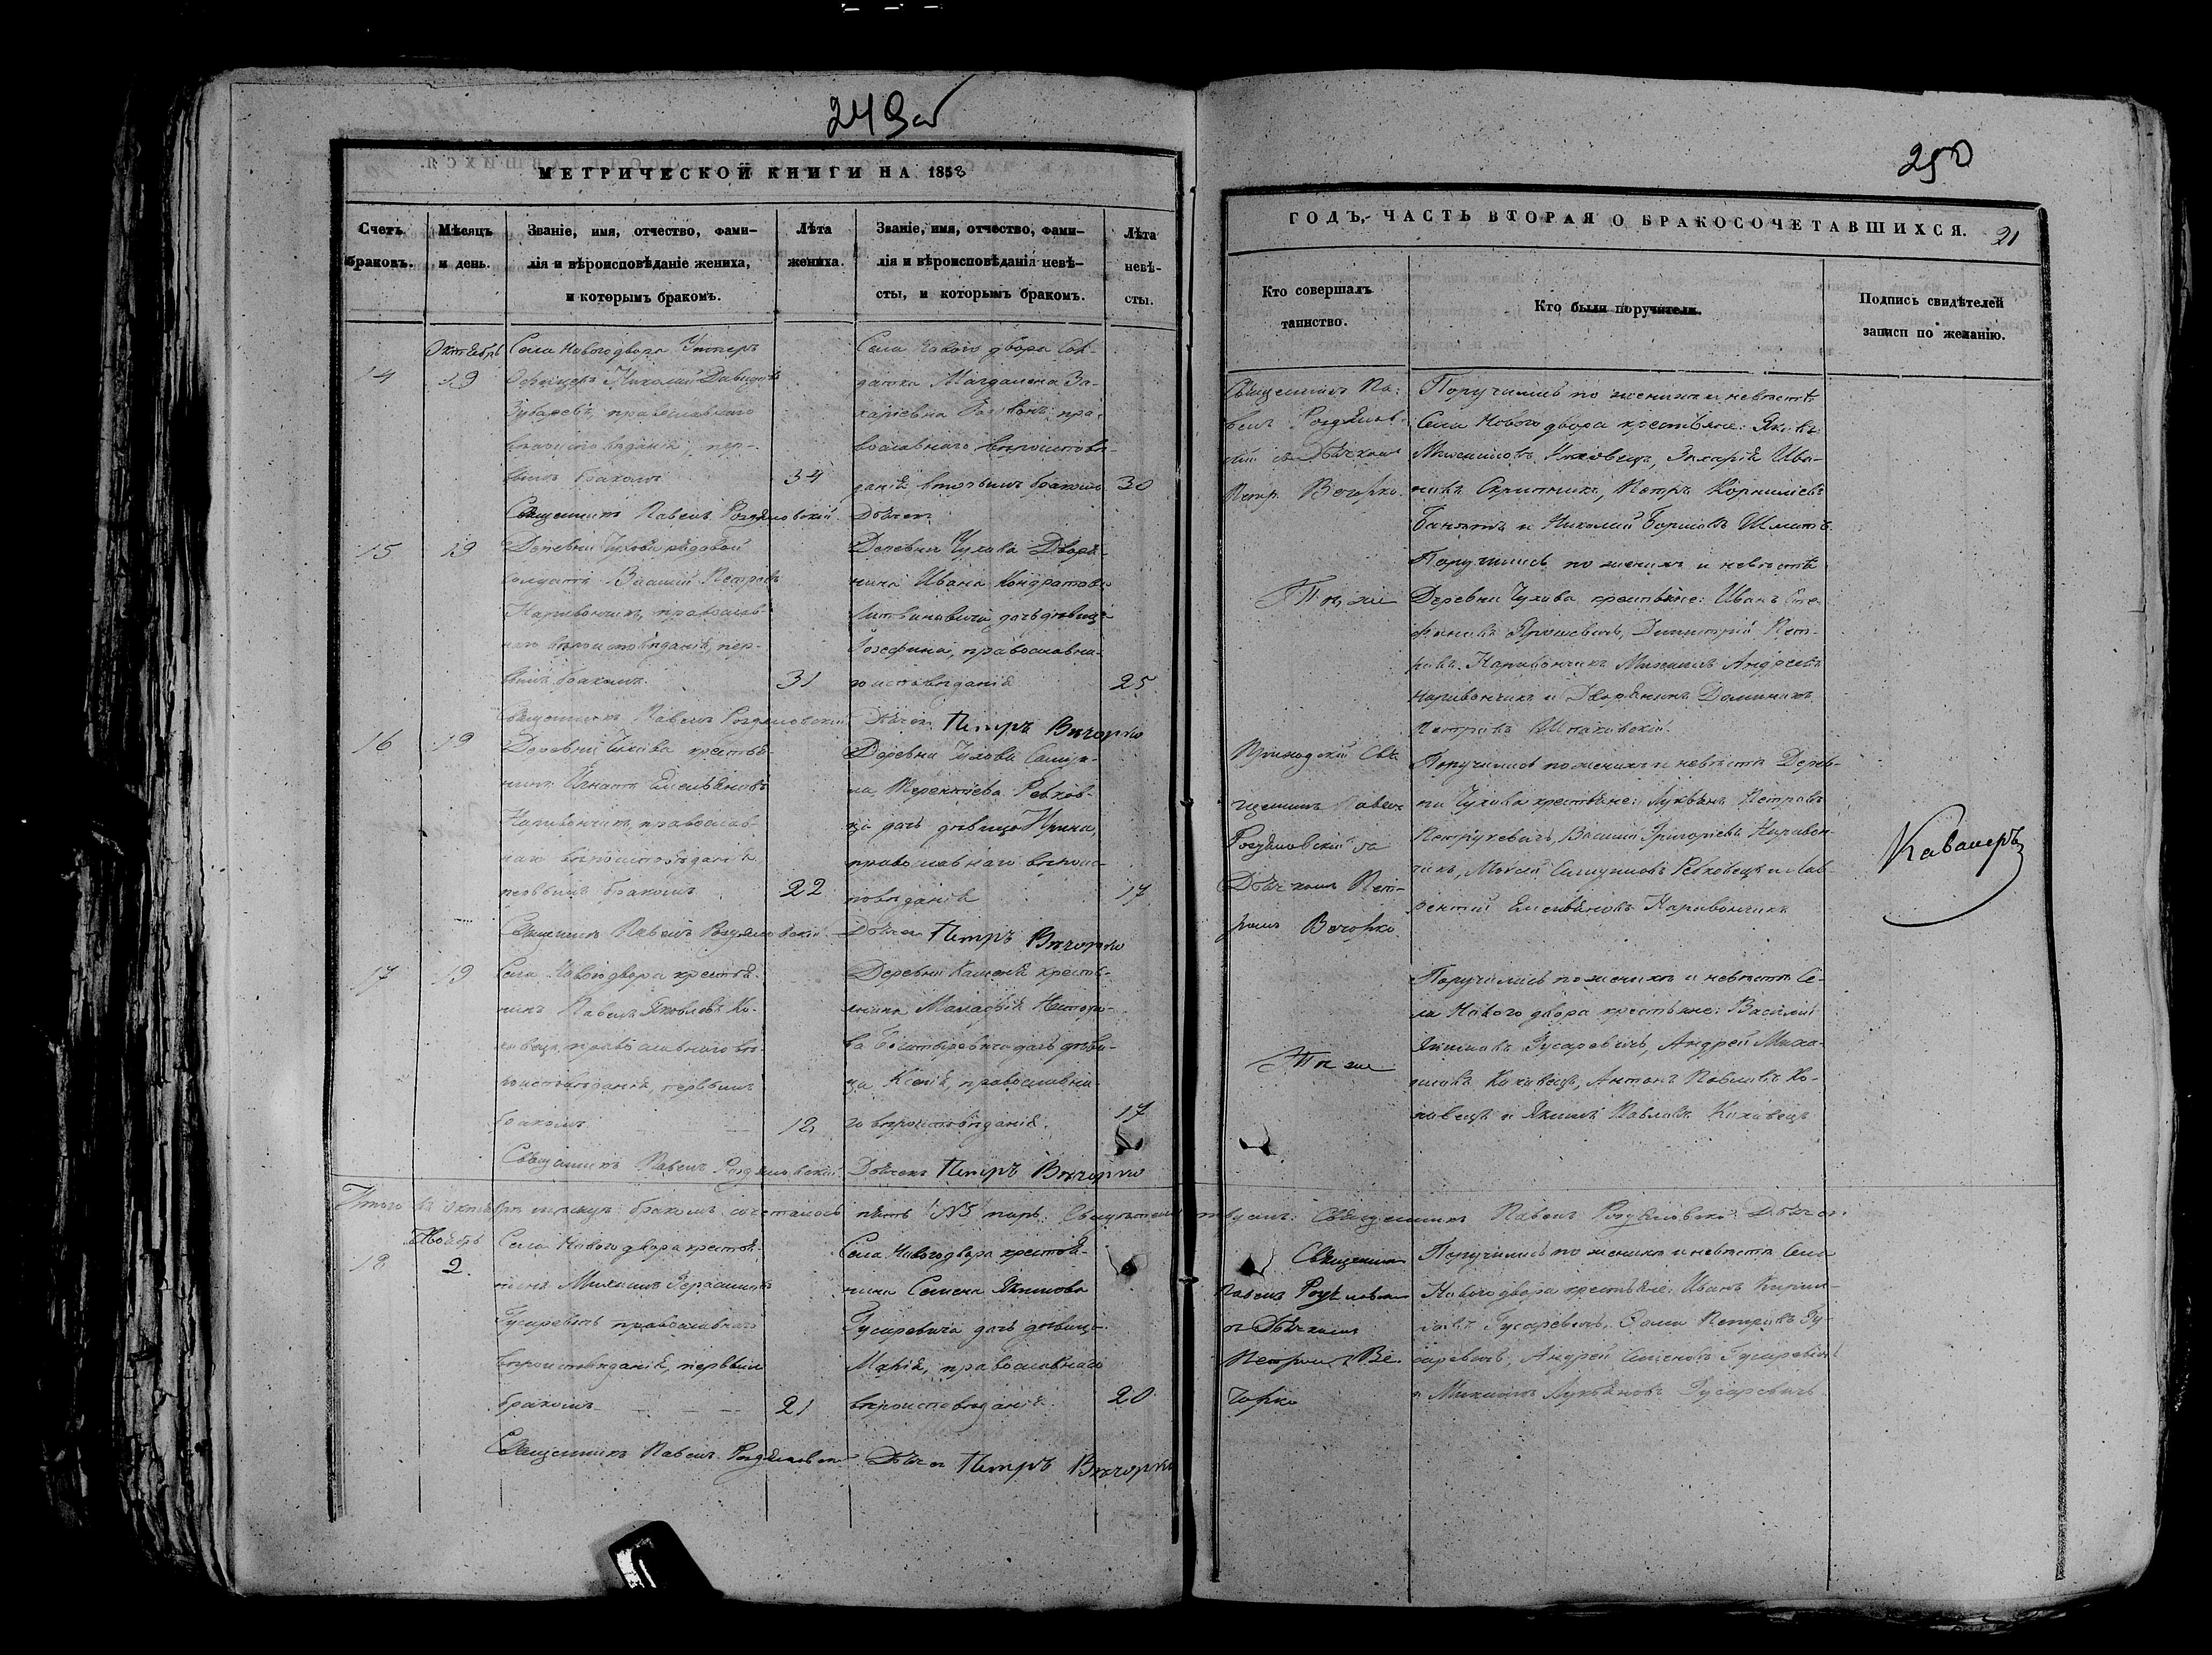 249об
МЕТРИЧЕСКОЙ КНИГИ НА 1858
Счетъ браковъ.
Мѣсяцъ и день.
Званіе, имя, отчество, фами-
лія и вѣроисповѣданіе жениха,
и которымъ бракомъ.
Лѣта
жениха.
Званіе, имя, отчество, фами-
лія и вѣроисповѣданія невѣ-
сты, и которымъ бракомъ.
Лѣта
невѣ-
сты.
Октябрь
14
19
Села Новогодвора Унтеръ
Офицеръ Николай Давидовъ
Зубаревъ, православнаго
вѣроисповѣданія, пер-
вымъ бракомъ
34
Села Новаго двора Сол-
датка Магдалена За-
харіевна пра-
вославнаго вѣроисповѣ-
данія вторымъ бракомъ
30
Священникъ Павелъ Роздяловскій
Дьячекъ
15
19
Деревни Чухова рядовой
солдатъ Василій Петровъ
Наривончикъ, православ-
наго вѣроисповѣданія, пер-
вымъ бракомъ.
31
Деревни Чухова Дворя-
нина Ивана Кондратова
Литвиновича дочь дѣвица
Іозефина, православна-
го исповѣданія
25
Священникъ Павелъ Роздяловскій
Дьячекъ Петръ Вечорко
16
19
Деревни Чухова крестья-
нинъ Игнатъ Емельяновъ
Наривончикъ, православ-
наго вѣроисповѣданія
первымъ бракомъ
22
Деревни Чухова Самуи-
ла Терентіева Ревков-
ца дочь дѣвица Ирина,
православнаго вѣроис-
повѣданія
17
Священникъ Павелъ Роздяловскій
Дьячекъ Петръ Вечорко
17
19
Села Новогодвора крестья-
нинъ Павелъ Яковлевъ Ко-
ховецъ, православнаго вѣ-
роисповѣданія, первымъ
бракомъ
18
Деревни Каменя крестья-
нина Манасія Нестеро-
ва Богатыревича дочь дѣви-
ца Ксенія, православна-
го вѣроисповѣданія.
17
Священникъ Павелъ Роздяловскій
Дьячекъ Петръ Вечорко
Итого въ Октябрѣ мѣсяцѣ бракомъ сочеталось пять №5 паръ.
Ноябрь
18
2.
Села Новогодвора крестья-
нинъ Михаилъ Герасимовъ
Гусаревичъ православнаго
вѣроисповѣданія, первымъ
бракомъ
21
Села Новогодвора крестья-
нина Семена Якимова
Гусаревича дочь дѣвица
Марія, православнаго
вѣроисповѣданія.
20
Священникъ Павелъ Роздяловскій
Дьячекъ Петръ Вечорко
250
ГОДЪ, ЧАСТЬ ВТОРАЯ О БРАКОСОЧЕТАВШИХСЯ.
21
Кто совершалъ
таинство.
Кто были поручители.
Подпись свидѣтелей
записи по желанію.
Священникъ Па-
велъ Роздялов-
скій съ Дьячкомъ
Петр. Вечорко
Поручились по женихѣ и невѣстѣ
Села Нового двора крестьяне: Яковъ
Коховецъ, Захарій Ива-
новъ Скрипникъ, Петръ Корниліевъ
и Николай
Тѣ же
Поручились по женихѣ и невѣстѣ
Деревни Чухова крестьяне: Иванъ Сте-
фановъ Димитрій Пет-
ровъ Наривончикъ Михаилъ Андреевъ
Наривончикъ и Дворянинъ Доминикъ
Петровъ
Приходскій Свя-
щенникъ Павелъ
Роздяловскій съ
Дьячкомъ Пет-
ромъ Вечорко
Поручились по женихѣ и невѣстѣ Дерев-
ни Чухова крестьяне: Лукьянъ Петровъ
Петрукевичъ, Василій Григоріевъ Наривон-
чикъ, Моисей Самуиловъ Ревковецъ и Лав-
рентій Емельяновъ Наривончикъ
Кавалеръ
Тѣ же
Поручились по женихѣ и невѣстѣ Се-
ла Нового двора крестьяне: Василій
Якимовъ Гусаревичъ, Андрей Миха-
иловъ Коховецъ, Антонъ Павловъ Ко-
ховецъ и Якимъ Павловъ Коховецъ
Священникъ Павелъ Роздяловскій Дьячекъ
Священникъ
Павелъ Роздяловскій
съ Дьячкомъ
Петромъ Ве-
чорко
Поручились по женихѣ и невѣстѣ Села
Новогодвора крестьяне: Иванъ Кирил-
ловъ Гусаревичъ, Ѳома Петровъ Гу-
саревичъ, Андрей Семеновъ Гусаревичъ
и Лукьяновъ Гусаревичъ